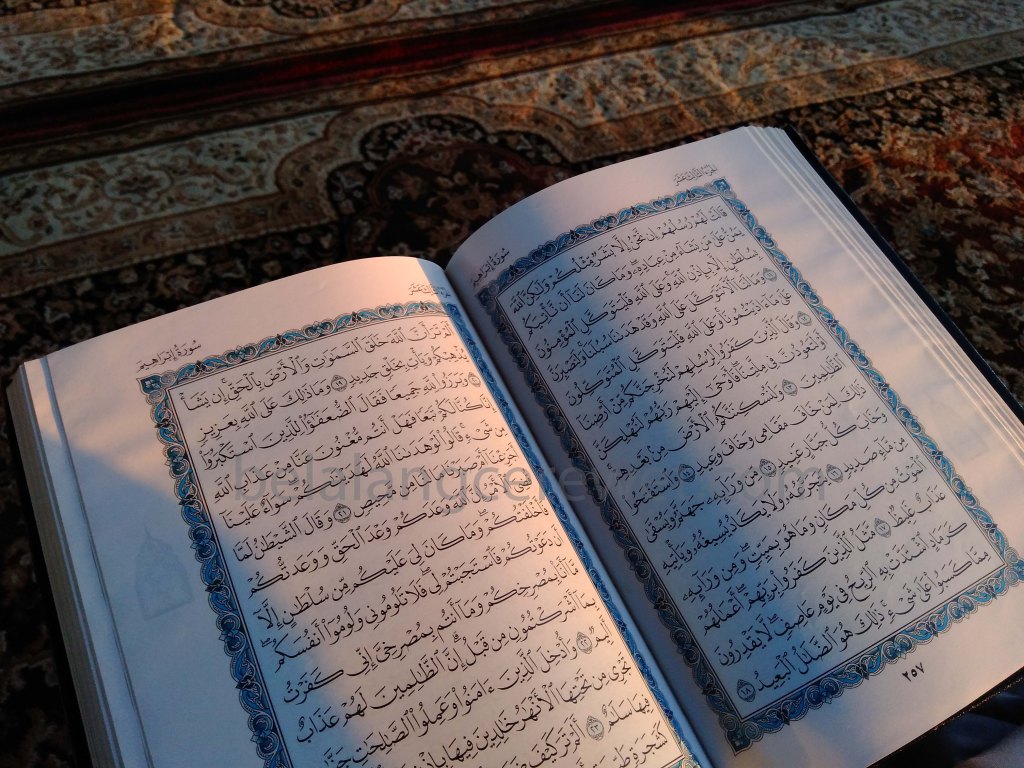 الجزء الثالث عشر
سورة إبراهيم
قَالَتْ لَهُمْ رُسُلُهُمْ إِن نَّحْنُ إِلَّا بَشَرٌ مِّثْلُكُمْ وَلَٰكِنَّ ٱللَّهَ
يَمُنُّ عَلَىٰ مَن يَشَآءُ مِنْ عِبَادِهِۦ وَمَا كَانَ لَنَآ أَن نَّأْتِيَكُم
بِسُلْطَٰنٍ إِلَّا بِإِذْنِ ٱللَّهِ وَعَلَى ٱللَّهِ فَلْيَتَوَكَّلِ ٱلْمُؤْمِنُونَ
١١ وَمَا لَنَآ أَلَّا نَتَوَكَّلَ عَلَى ٱللَّهِ وَقَدْ هَدَىٰنَا سُبُلَنَا وَلَنَصْبِرَنَّ
عَلَىٰ مَآ ءَاذَيْتُمُونَا وَعَلَى ٱللَّهِ فَلْيَتَوَكَّلِ ٱلْمُتَوَكِّلُونَ
١٢ وَقَالَ ٱلَّذِينَ كَفَرُوا۟ لِرُسُلِهِمْ لَنُخْرِجَنَّكُم مِّنْ أَرْضِنَآ
أَوْ لَتَعُودُنَّ فِى مِلَّتِنَا فَأَوْحَىٰٓ إِلَيْهِمْ رَبُّهُمْ لَنُهْلِكَنَّ
ٱلظَّٰلِمِينَ ١٣ وَلَنُسْكِنَنَّكُمُ ٱلْأَرْضَ مِنۢ بَعْدِهِمْ
ذَٰلِكَ لِمَنْ خَافَ مَقَامِى وَخَافَ وَعِيدِ ١٤ وَٱسْتَفْتَحُوا۟
وَخَابَ كُلُّ جَبَّارٍ عَنِيدٍ ١٥ مِّن وَرَآئِهِۦ جَهَنَّمُ وَيُسْقَىٰ
مِن مَّآءٍ صَدِيدٍ ١٦ يَتَجَرَّعُهُۥ وَلَا يَكَادُ يُسِيغُهُۥ وَيَأْتِيهِ
ٱلْمَوْتُ مِن كُلِّ مَكَانٍ وَمَا هُوَ بِمَيِّتٍ وَمِن وَرَآئِهِۦ
عَذَابٌ غَلِيظٌ ١٧ مَّثَلُ ٱلَّذِينَ كَفَرُوا۟ بِرَبِّهِمْ أَعْمَٰلُهُمْ
كَرَمَادٍ ٱشْتَدَّتْ بِهِ ٱلرِّيحُ فِى يَوْمٍ عَاصِفٍ لَّا يَقْدِرُونَ
مِمَّا كَسَبُوا۟ عَلَىٰ شَىْءٍ ذَٰلِكَ هُوَ ٱلضَّلَٰلُ ٱلْبَعِيدُ ١٨
٢٥٧
سورة إبراهيم
أَلَمْ تَرَ أَنَّ ٱللَّهَ خَلَقَ ٱلسَّمَٰوَٰتِ وَٱلْأَرْضَ بِٱلْحَقِّ إِن يَشَأْ
يُذْهِبْكُمْ وَيَأْتِ بِخَلْقٍ جَدِيدٍ ١٩ وَمَا ذَٰلِكَ عَلَى ٱللَّهِ بِعَزِيزٍ
٢٠ وَبَرَزُوا۟ لِلَّهِ جَمِيعًا فَقَالَ ٱلضُّعَفَٰٓؤُا۟ لِلَّذِينَ ٱسْتَكْبَرُوٓا۟
إِنَّا كُنَّا لَكُمْ تَبَعًا فَهَلْ أَنتُم مُّغْنُونَ عَنَّا مِنْ عَذَابِ ٱللَّهِ
مِن شَىْءٍ قَالُوا۟ لَوْ هَدَىٰنَا ٱللَّهُ لَهَدَيْنَٰكُمْ سَوَآءٌ عَلَيْنَآ
أَجَزِعْنَآ أَمْ صَبَرْنَا مَا لَنَا مِن مَّحِيصٍ ٢١ وَقَالَ ٱلشَّيْطَٰنُ لَمَّا
قُضِىَ ٱلْأَمْرُ إِنَّ ٱللَّهَ وَعَدَكُمْ وَعْدَ ٱلْحَقِّ وَوَعَدتُّكُمْ
فَأَخْلَفْتُكُمْ وَمَا كَانَ لِىَ عَلَيْكُم مِّن سُلْطَٰنٍ إِلَّآ
أَن دَعَوْتُكُمْ فَٱسْتَجَبْتُمْ لِى فَلَا تَلُومُونِى وَلُومُوٓا۟ أَنفُسَكُم
مَّآ أَنَا۠ بِمُصْرِخِكُمْ وَمَآ أَنتُم بِمُصْرِخِىَّ إِنِّى كَفَرْتُ
بِمَآ أَشْرَكْتُمُونِ مِن قَبْلُ إِنَّ ٱلظَّٰلِمِينَ لَهُمْ عَذَابٌ
أَلِيمٌ ٢٢ وَأُدْخِلَ ٱلَّذِينَ ءَامَنُوا۟ وَعَمِلُوا۟ ٱلصَّٰلِحَٰتِ جَنَّٰتٍ
تَجْرِى مِن تَحْتِهَا ٱلْأَنْهَٰرُ خَٰلِدِينَ فِيهَا بِإِذْنِ
فِيهَا سَلَٰمٌ ٢٣ أَلَمْ تَرَ كَيْفَ ضَرَبَ
كَشَجَرَةٍ طَيِّبَةٍ